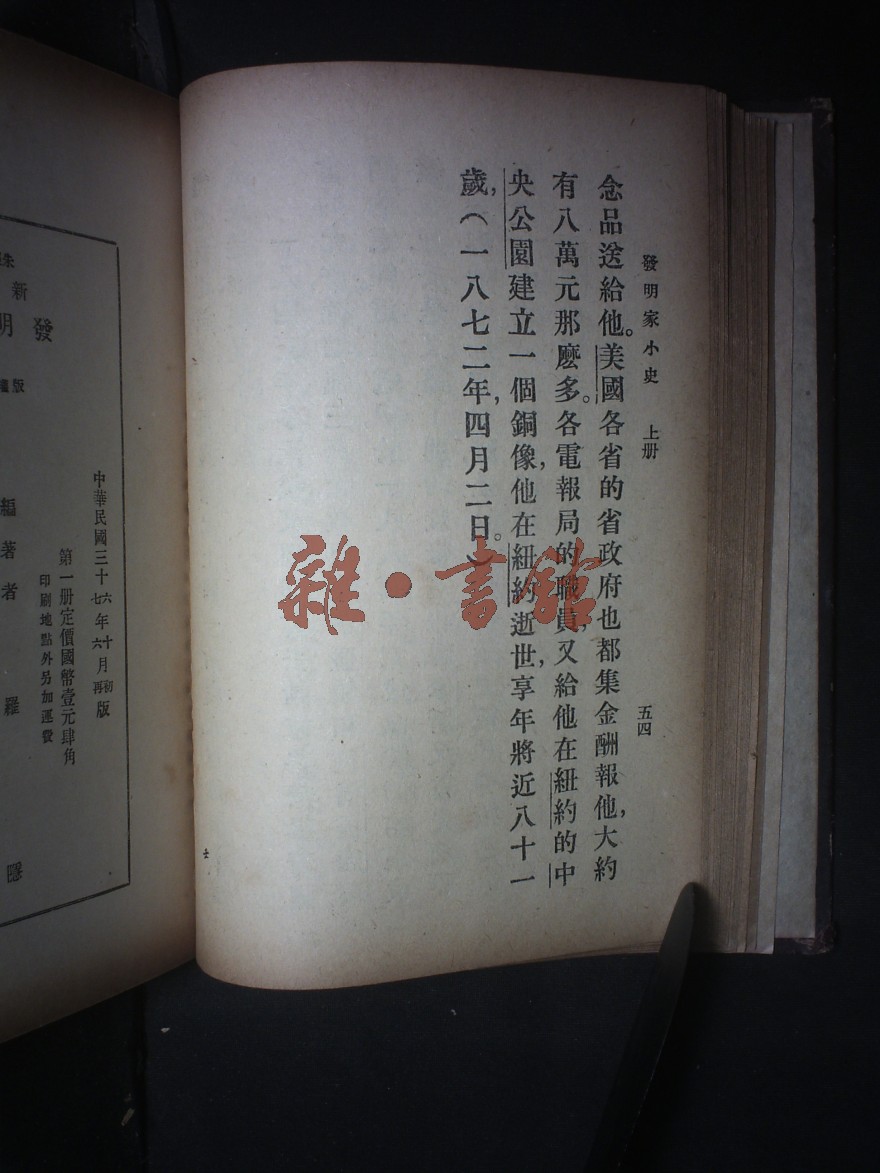 發明家小史 上册 五四
念品送給他。美國各省的省政府也都集金酬報他，大約
有八萬元那麽多。各電報局的職員，又給他在紐約的中
央公園建立一個銅像，他在紐約逝世，享年將近八十一
歲，（一八七二年，四月二日。）
士
雜·書館
中華民國三十六年十月初版
三十七年六月再版
第一册定價國幣壹元肆角
印刷地點外另加運費
發明
新
編著者 羅
版